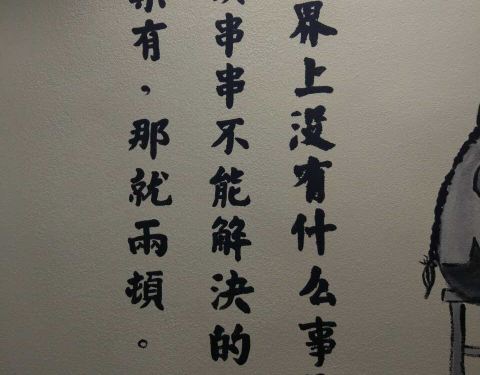 界上没有什么事
串串不能解決的
有，那就兩頓。